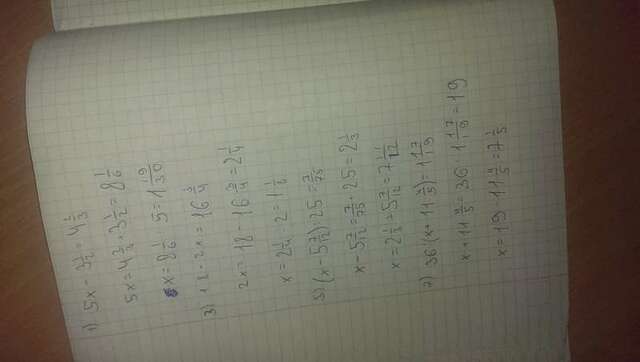 1) 5x - 3 1/2 = 4 2/3
5x = 4 2/3 + 3 1/2 = 8 1/6
x = 8 1/6 : 5 = 1 19/30
3) 18 - 2x = 16 3/4
2x = 18 - 16 3/4 = 2 1/4
x = 2 1/4 : 2 = 1 1/8
5) (x - 5 7/12) : 25 = 7/75
x - 5 7/12 = 7/75 · 25 = 2 1/3
x = 2 1/3 + 5 7/12 = 7 11/12
7) 36 : (x + 11 4/5) = 1 17/19
x + 11 4/5 = 36 : 1 17/19 = 19
x = 19 - 11 4/5 = 7 1/5